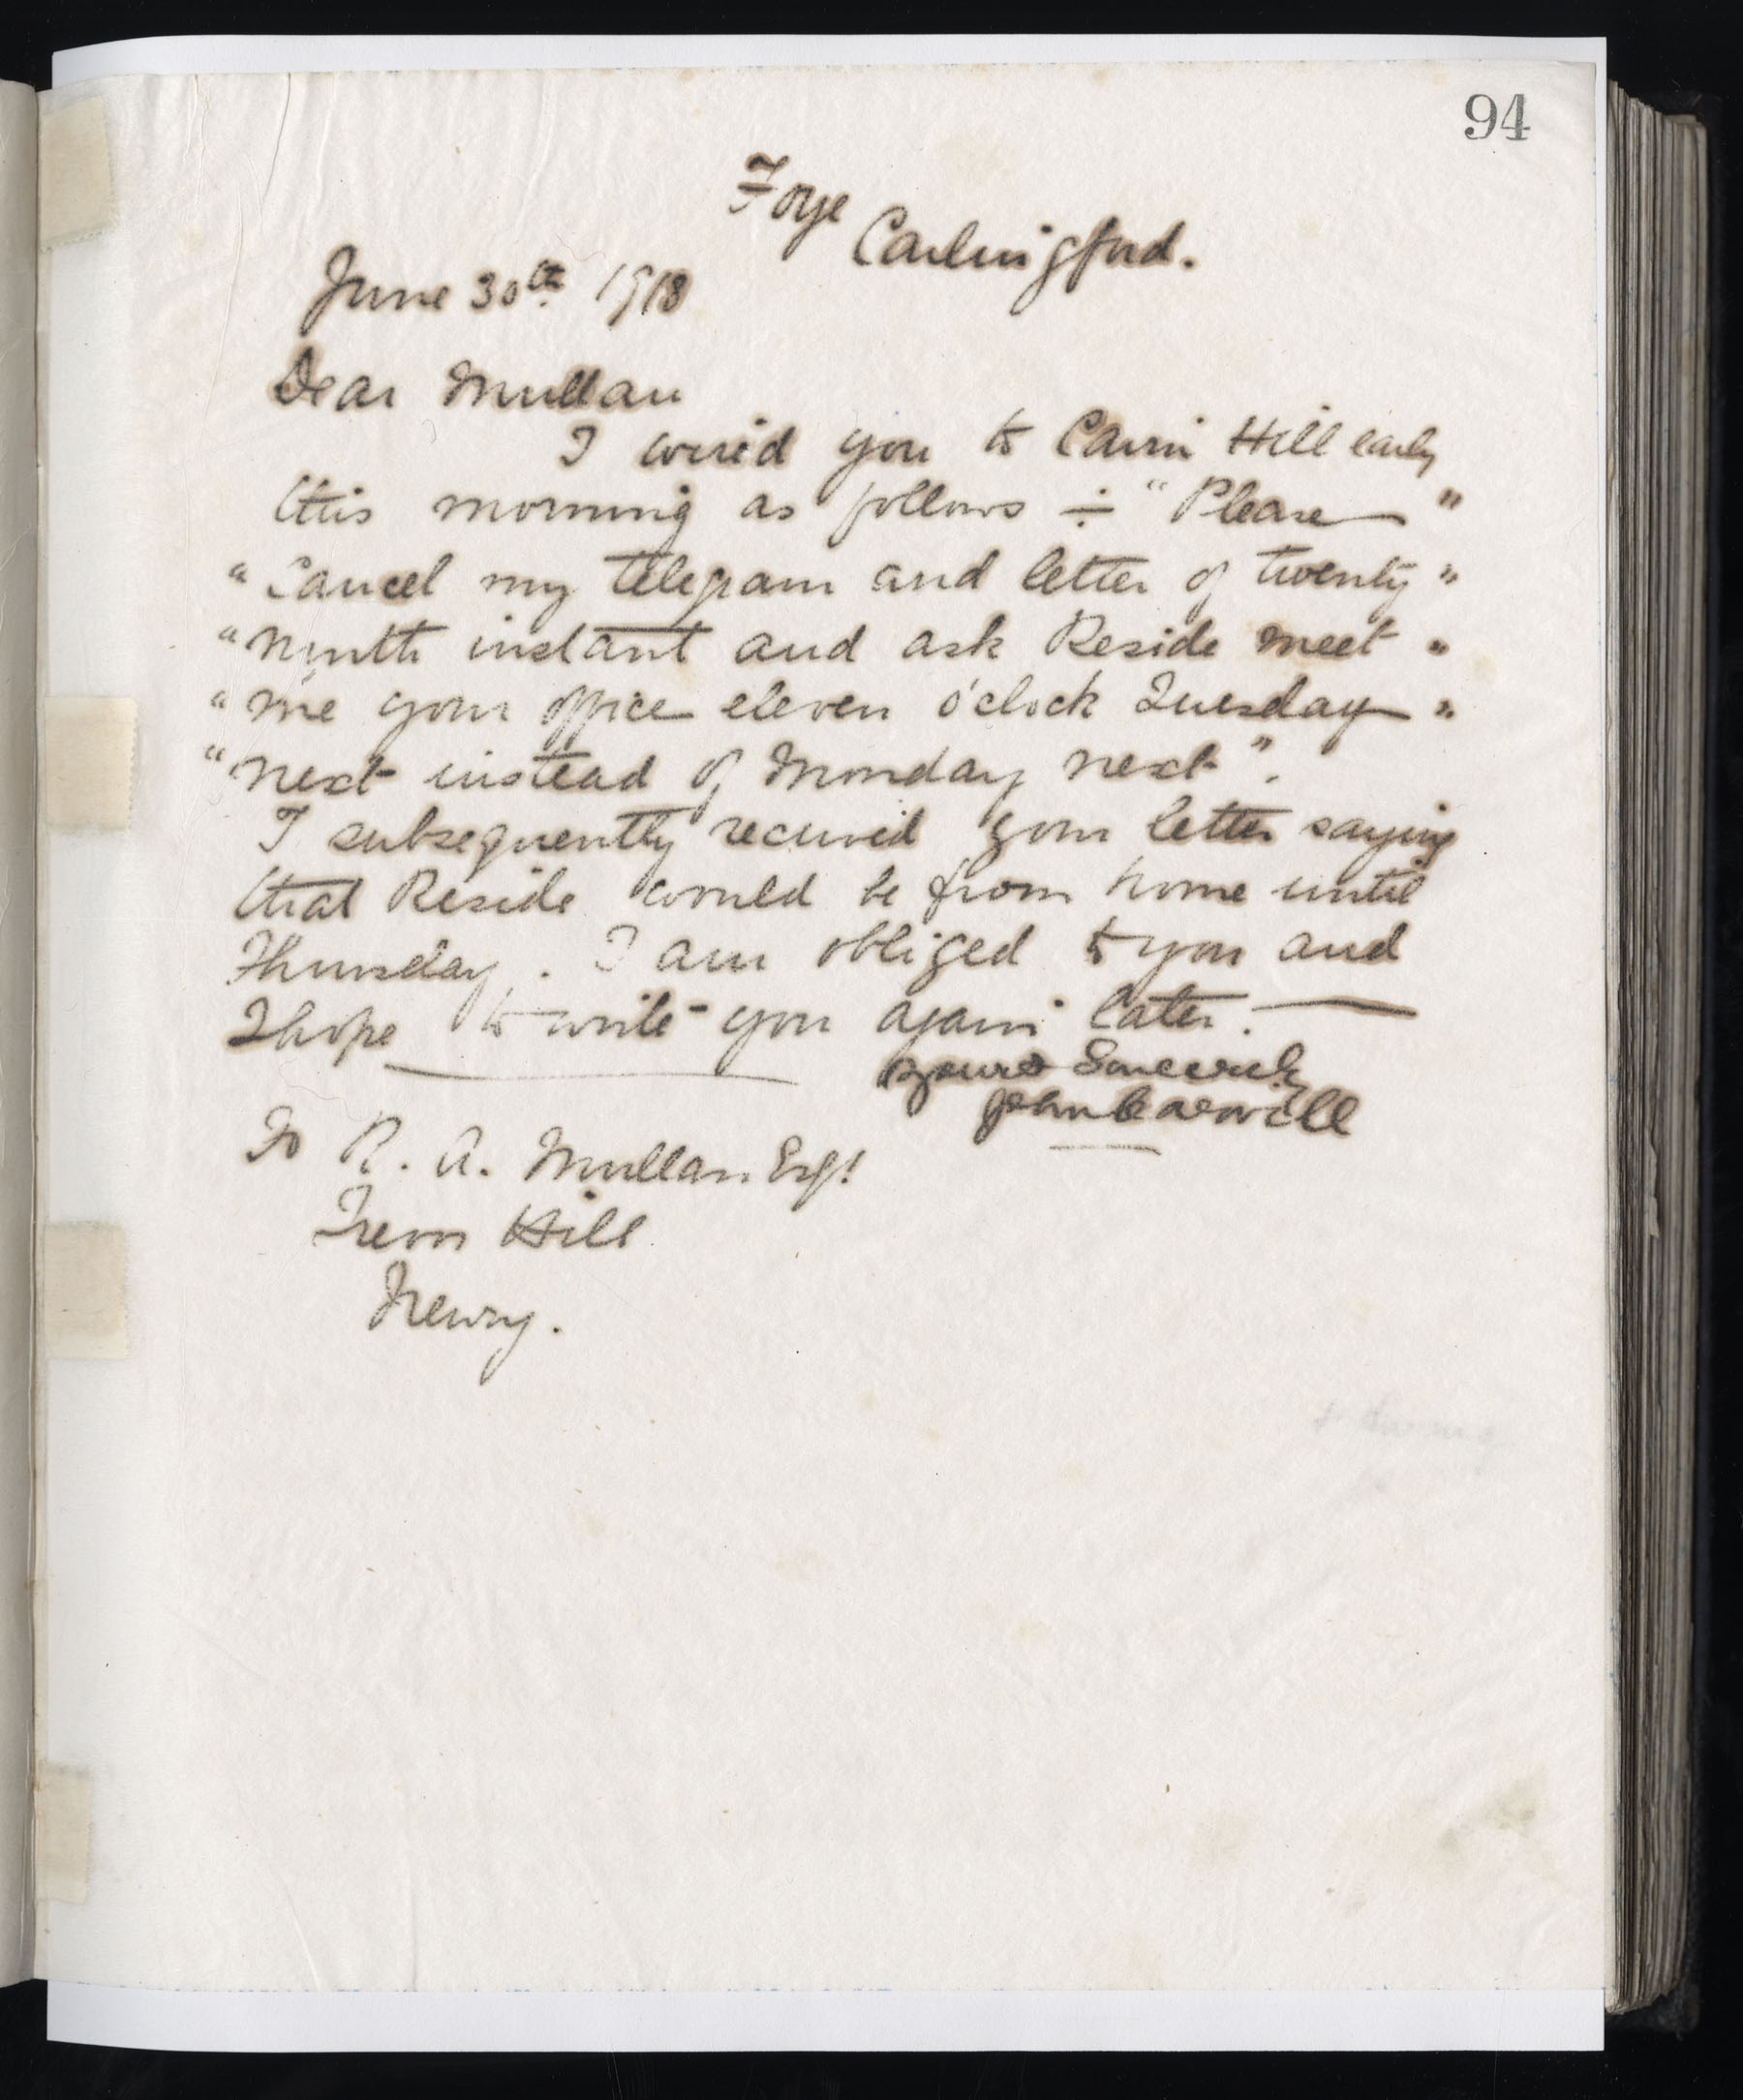 94
Foye
Carlingford.
June 30th 1918
Dear Mullan
I wired you to Cairn Hill early
this morning as follows ÷ "Please "
"Cancel my telegram and letter of twenty "
"ninth instant and ask Reside meet "
"me your office eleven o'clock Tuesday "
"next instead of Monday next".
I subsequently received your letter saying
that Reside would be from home until
Thursday. I am obliged to you and
I hope to write you again later.
yours Sincerely
John Carvill
To R. A. Mullan Esq!
Trevor Hill
Newry.